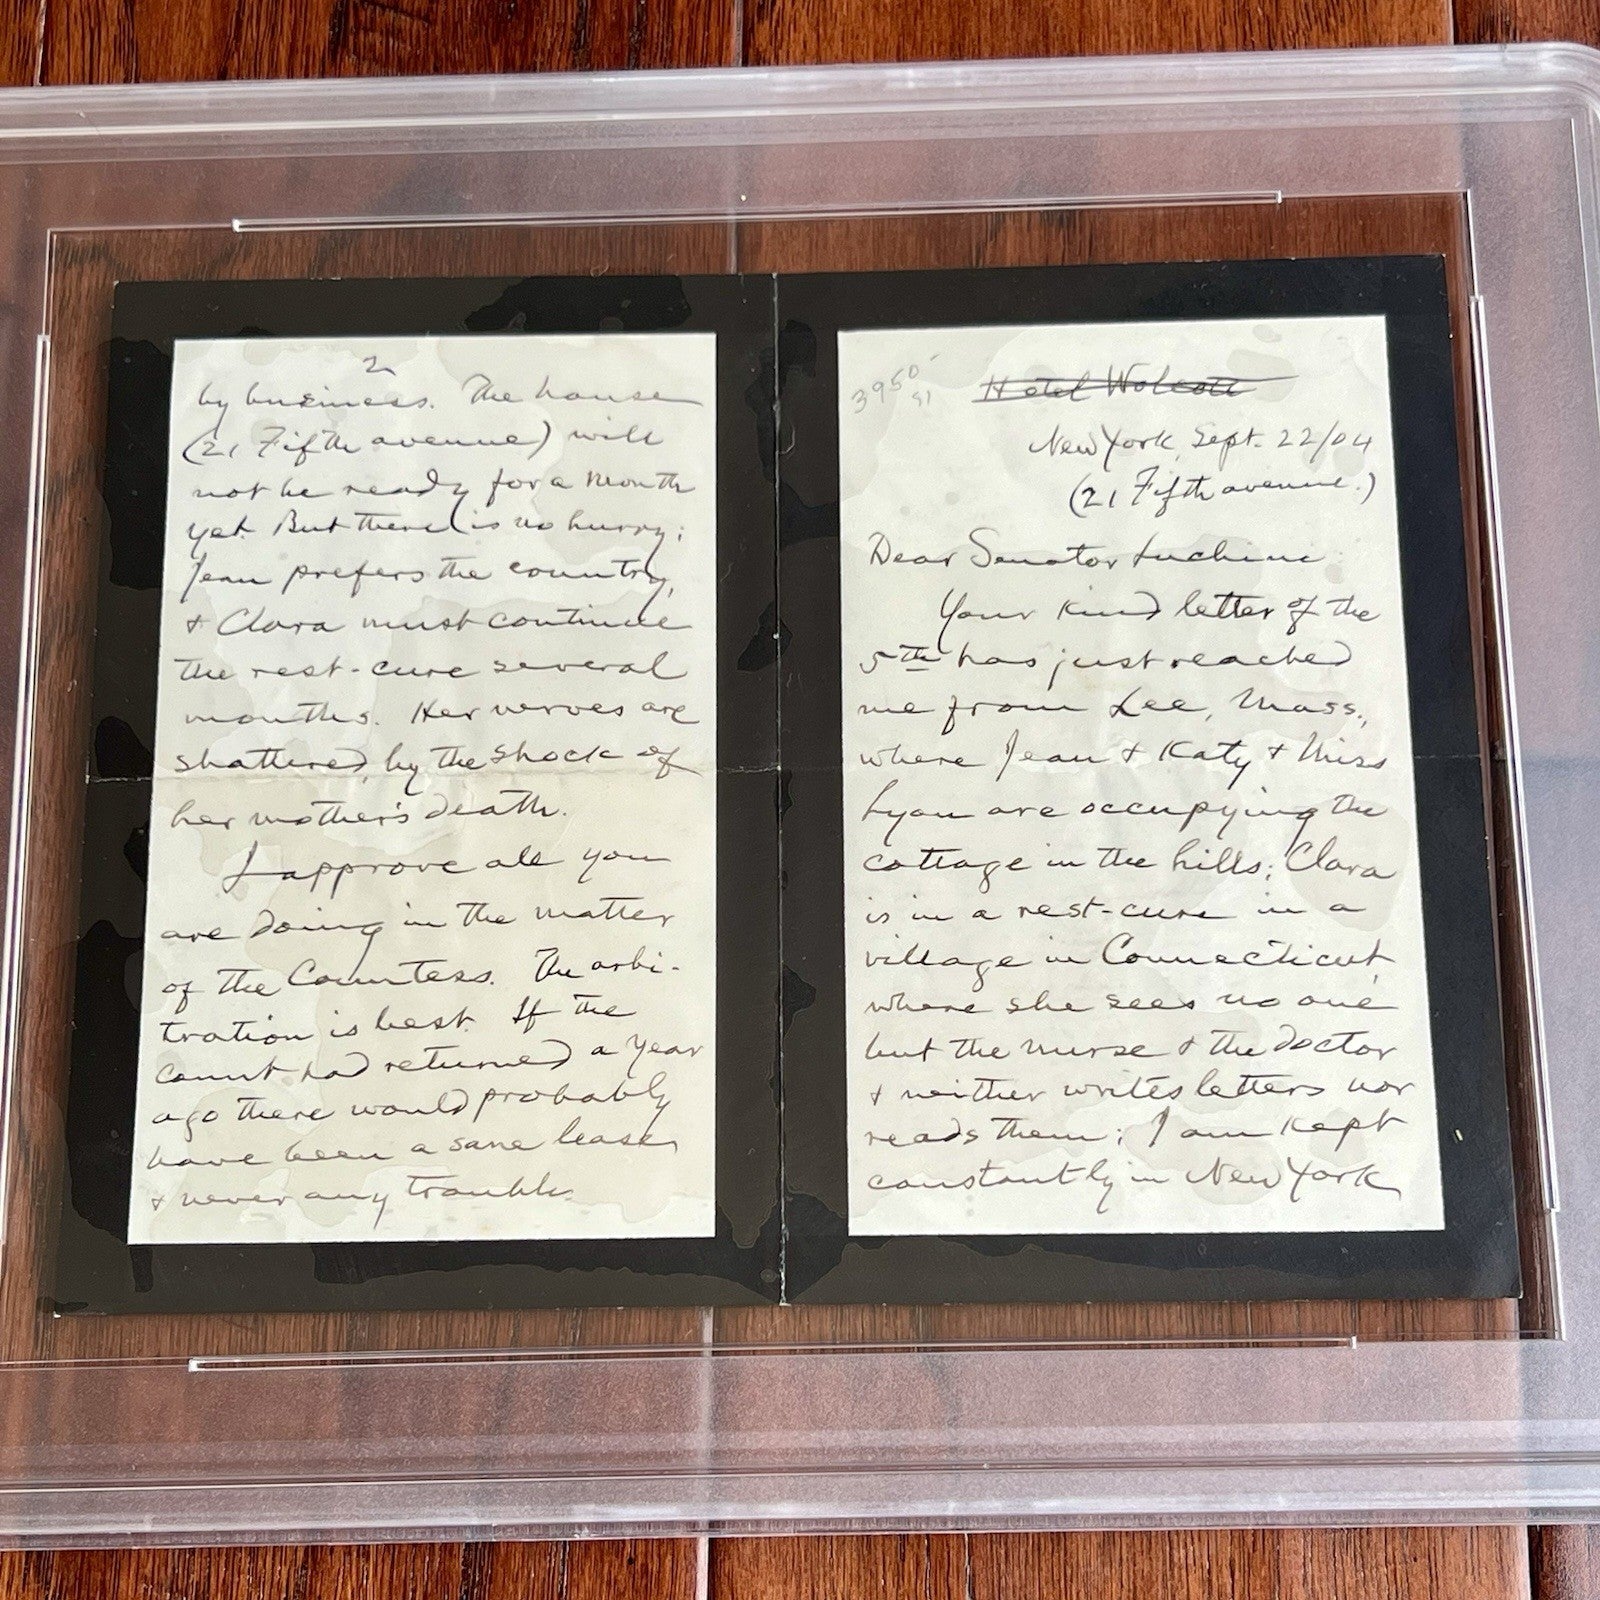 3950
91
Hotel Wolcott
New York, Sept. 22/04
(21 Fifth avenue.)
Dear Senator Luchini:
Your kind letter of the
5th has just reached
me from Lee, Mass.,
where Jean & Katy & Miss
Lyon are occupying the
cottage in the hills; Clara
is in a rest-cure in a
village in Connecticut,
where she sees no one
but the nurse & the doctor
& neither writes letters nor
reads them; I am kept
constantly in New York
2
by business. The house
(21 Fifth avenue) will
not be ready for a month
yet. But there is no hurry;
Jean prefers the country,
& Clara must continue
the rest-cure several
months. Her nerves are
shattered, by the shock of
her mother's death.
I approve all you
are doing in the matter
of the Countess. The arbi-
tration is best. If the
Count had returned a year
ago there would probably
have been a sane lease,
& never any trouble.